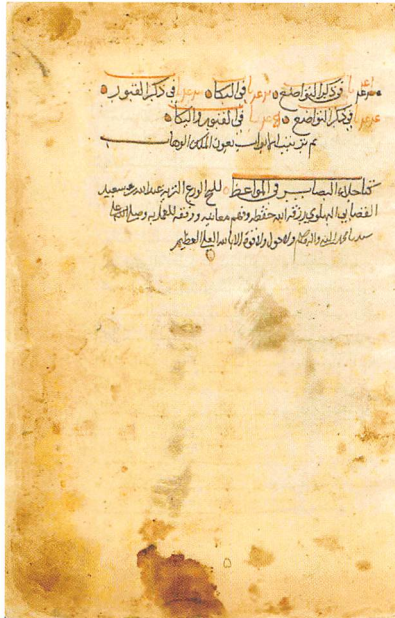 في ذكر التواضع في البكاء في ذكر القبور
في ذكر التواضع في القبور والبكاء
تم ترتيب الابواب بعون الملك الوهاب
كتاب جلاء البصاير في المواعظ للشيخ الورع النزيه عبدالله بن سعيد
رزقه الله حفظه وفهم معانيه ووفقه للعمل به وصلى الله على
سيدنا محمد النبي واله وسلم ولا حول ولا قوة الا بالله العلي العظيم